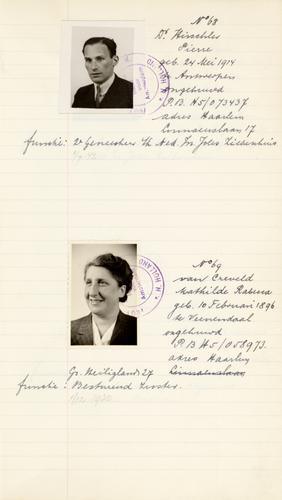 No 68
Dr. Hirschler
Pierre
geb. 24 Mei 1914
te Antwerpen
ongehuwd
P.B. H5/073437
adres Haarlem
Linnaeuslaan 17
functie: 2e Geneesheer Ver. Ned. Isr. Joles Ziekenhuis
No 69
van Creveld
Mathilde Rabecca
geb. 10 Februari 1896
te Veenendaal
ongehuwd
P.B H5/058973.
adres Haarlem
Linnaeuslaan
Gr. Heiligland 27
functie: Besturend Zuster.
HOLLAND